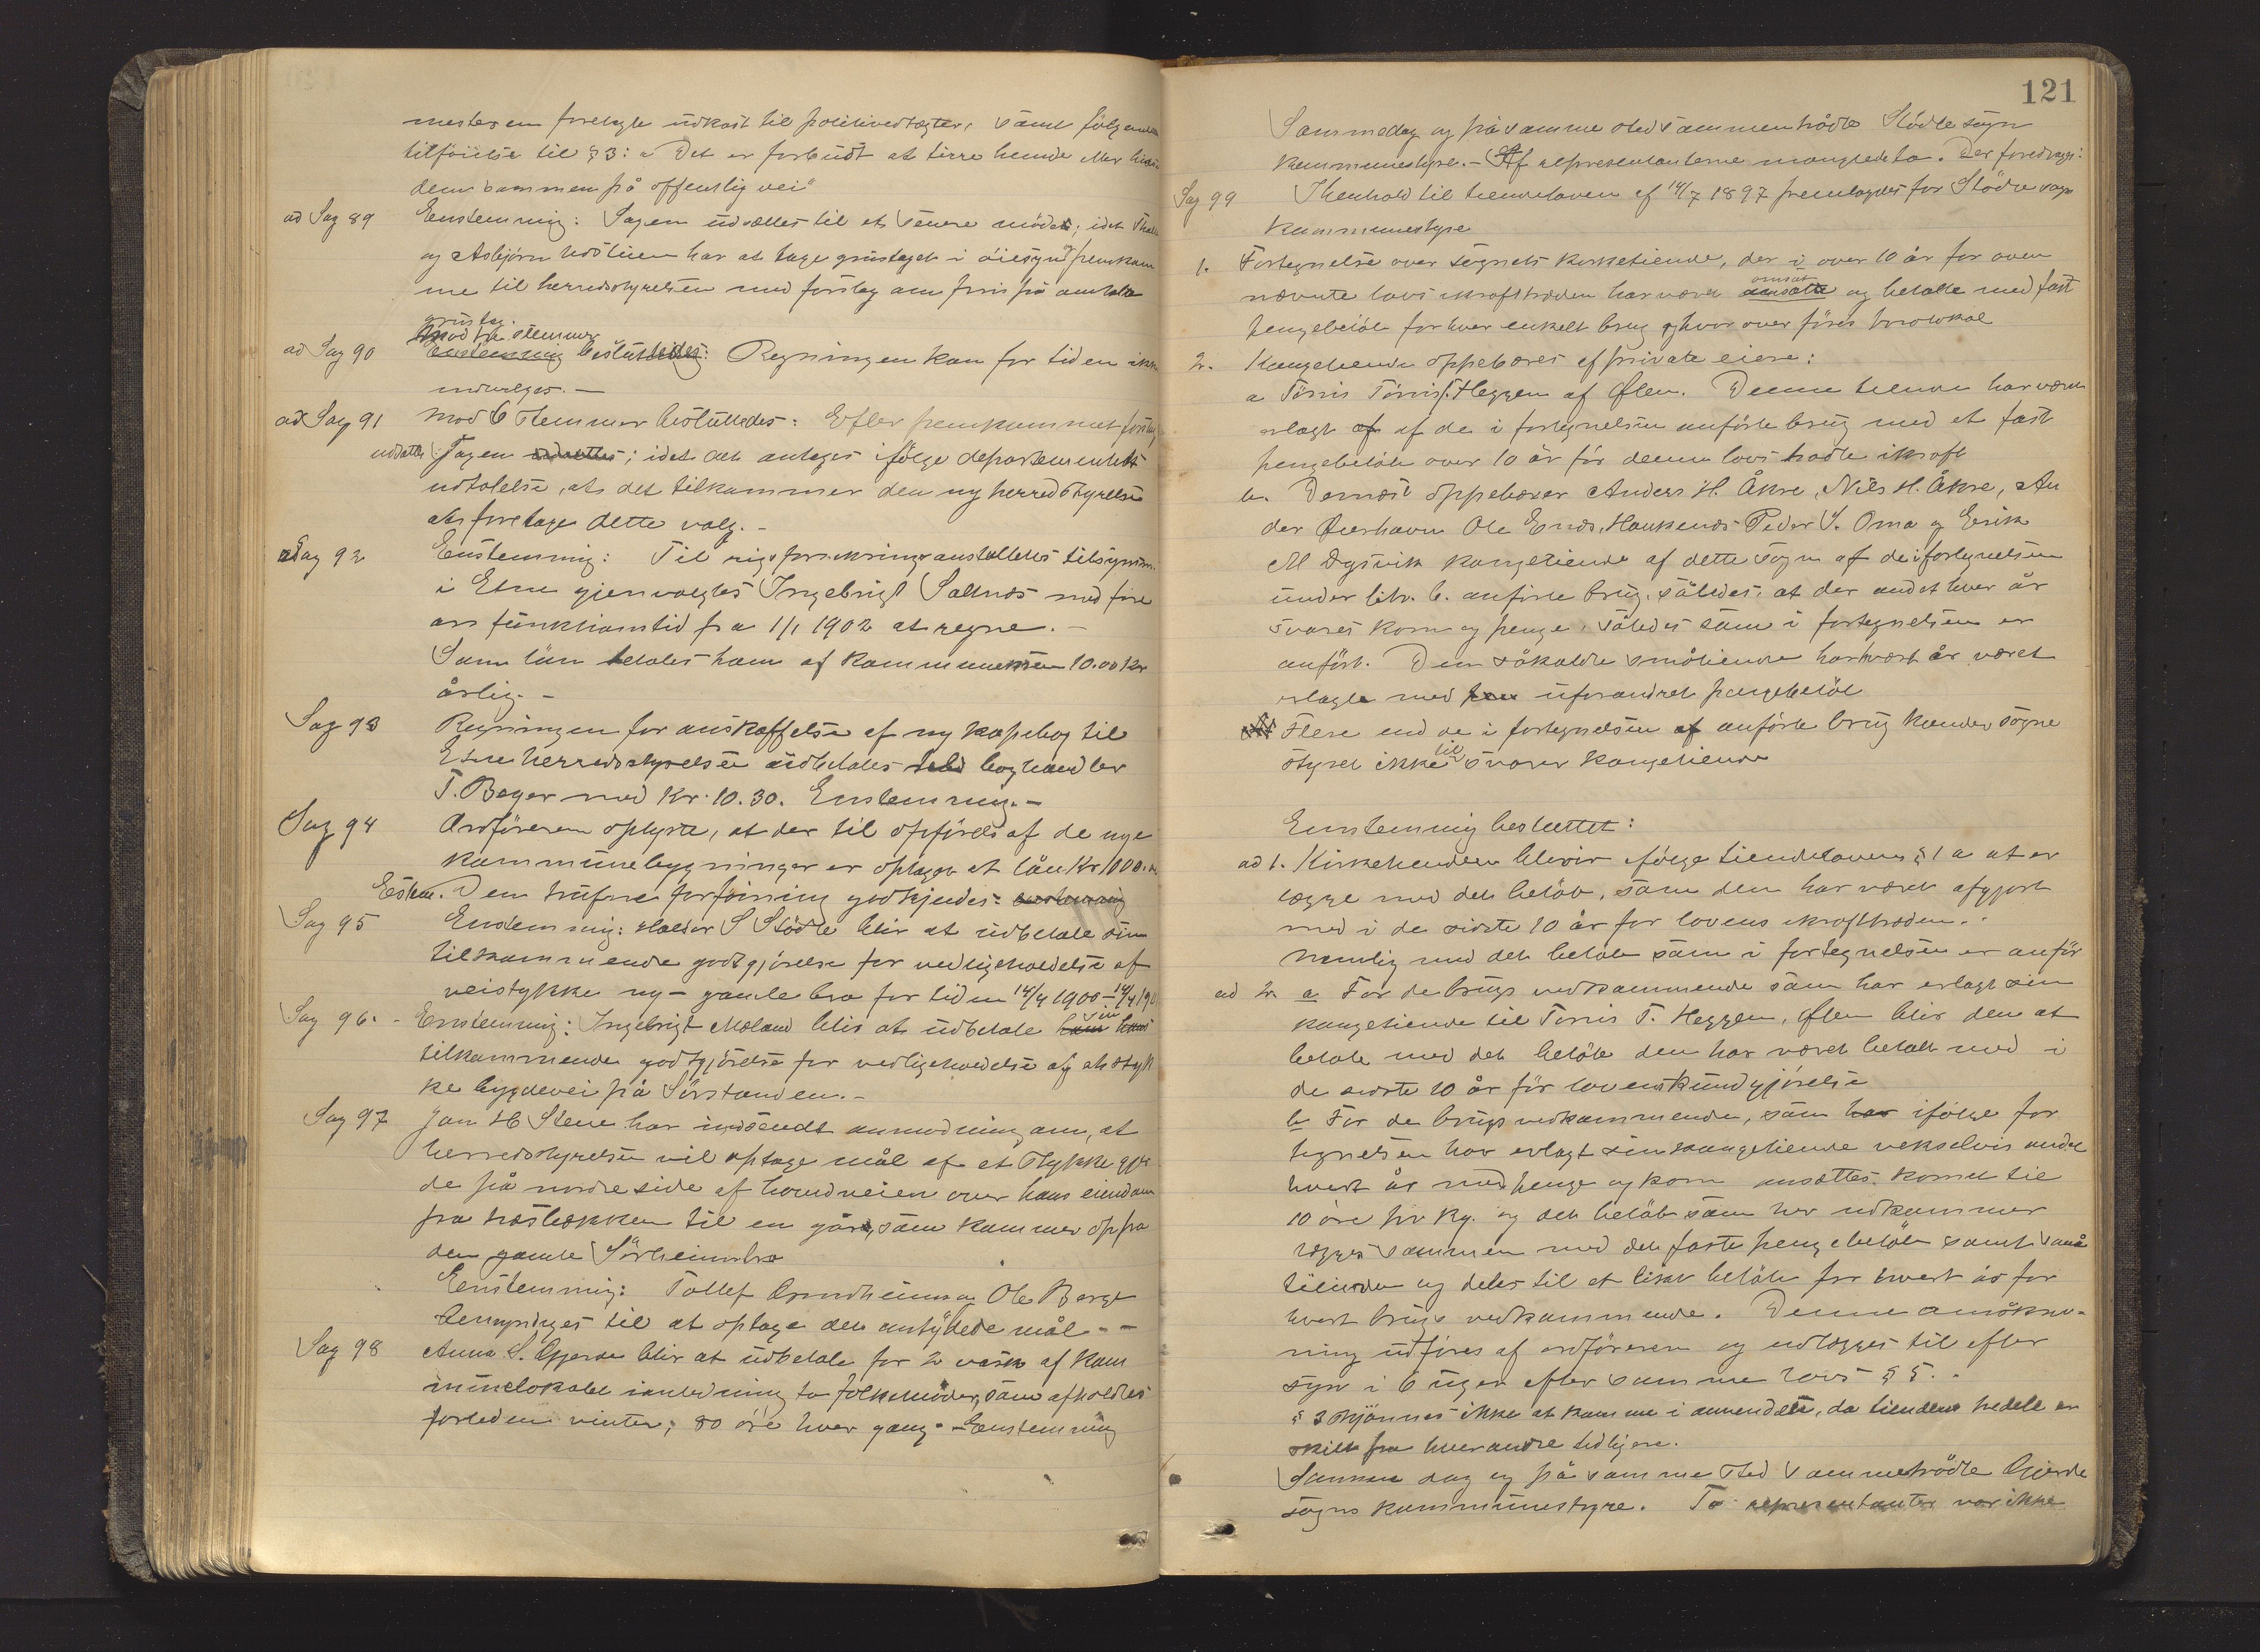 mesteren forelagte udkast til politivedtægter, samt følgende
tilføielse til § 3: "Det er forbudt at tirre hunde eller hidse
dem sammen på offentlig vei"
ad Sag 89 Enstemmig: Sagen udsættes til et senere møde; idet
og Asbjørn har at tage grustaget i øiesyn og fremkom
me til herredsstyrelsen med forslag om pris på omtalte
grustag.
ad Sag 90 Mod tre stemmer besluttedes: Regningen kan for tiden ikke
indvilges. –
ad Sag 91 Mod 6 stemmer besluttedes: Efter fremkommet forslag
udsættes Sagen; idet det antages ifølge departementets
udtalelse, at det tilkommer den ny herredsstyrelse
at foretage dette valg. –
ad Sag 92 Enstemmig: Til rigsforsikringsanstaltens tilsynsm.
i Etne gjenvalgtes Ingebrigt Saltnes med fire
års funktionstid fra 1/1 1902 at regne. –
Som løn betales ham af kommunekassen 10.00 kr
årlig. –
Sag 93 Regningen for anskaffelse af ny kopibog til
Etne herredsstyrelse udbetales boghandler
T. Bøger med Kr. 10.30. Enstemmig. –
Sag 94 Ordføreren oplyste, at der til opførels af de nye
kommunebygninger er optaget et lån Kr 1000.
Enstem. Den trufne forføining godkjendes: enstemmig
Sag 95 Enstemmig: Halvor S Stødle blir at udbetale sin
tilkommende godtgjørelse for vedligeholdelse af
veistykke ny – gamle bro for tiden 14/4 1900 – 14/4 190
Sag 96. - Enstemmig: Ingebrigt Moland blir at udbetale sin
tilkommende godtgjørelse for vedligeholdelse af et styk
ke bygdevei på Sørstranden. –
Sag 97 Jon H Stene har indsendt anmodning om, at
herredsstyrelsen vil optage mål af et stykke gjer
de på nordre side af hovedveien over hans eiendom
fra til en gård, som kommer op fra
den gamle Sørheimsbro
Enstemmig: Tollef Grindheim og Ole Berge
bemyndiges til at optage det antydede mål. –
Sag 98 Anna S. Gjerde blir at udbetale for 2 vask af kom
munelokalet i anledning to folkemøder, som afholdtes
forleden vinter, 80 øre hver gang. – Enstemmig
121
Sammedag og på samme sted sammentrådte Stødle sogn
kommunestyre. – Af repræsentanterne manglede to. Der foredrags:
Sag 99 I henhold til tiendeloven af 14/7 1897 fremlagdes for Stødle sogns
kommunestyre
1. Fortegnelse over sognets kirketiende, der i over 10 år før oven
nævnte lovs ikrafttræden har været omsat og betalte med fast
pengebeløb for hver enkelt brug og hvorover føres protokol
2. Kongetiende oppebæres af private eiere:
a Tørris Tørriss. Heggen af Ølen. Denne tiende har været
erlagt af de i fortegnelsen anførte brug med et fast
pengebeløb over 10 år før denne lovs trådte ikraft
b. Dernæst oppebærer Anders H. Åkre, Nils H. Åkre, An
der Øierhavn Ole Enæs, Haukenæs Peder S. Oma og Eirik
M Dysvik kongetiende af dette sogn af de i fortegnelsen
under litr. b. anførte brug, således: at der andethver år
svares korn og penge, således som i fortegnelsen er
anført. Den såkaldte småtiende har hvert år været
erlagte med uforandret pengebeløb
Flere end de i fortegnelsen anførte brug kender sogne
styret ikke til svarer kongetiende
Enstemmig besluttet:
ad 1. Kirketienden bliver ifølge tiendelovens § 1 a at er
lægge med det beløb, som den har været afgjort
med i de sidste 10 år for lovens ikrafttræden. .
Nemlig med det beløb som i fortegnelsen er anfør
ad 2. a For de brugs vedkommende som har erlagt sin
kongetiende til Tørris T. Heggen, Ølen blir den at
betale med det beløb den har været betalt med i
de sidste 10 år før lovens kundgjørelse
b For de brugs vedkommende, som ifølge for
tegnelsen har erlagt sin kongetiende vekselvis andet
hvert år med penge og korn ansættes kornet til
10 øre pr kg. og det beløb som her udkommer
lægges sammen med det faste pengebeløb samt små
tienden og deles til et likt beløb for hvert år for
hvert brugs vedkommende. Denne
ning udføres af ordføreren og udlægges til efter
syn i 6 uger efter samme lovs § 5. .
§ 3 skjønnes ikke at komme i anvendelse, da tiendens hedele er
skilt fra hverandre tidligere.
Samme dag og på samme sted sammentrådte Gjerde
sogns kommunestyre. To repræsentanter var ikke